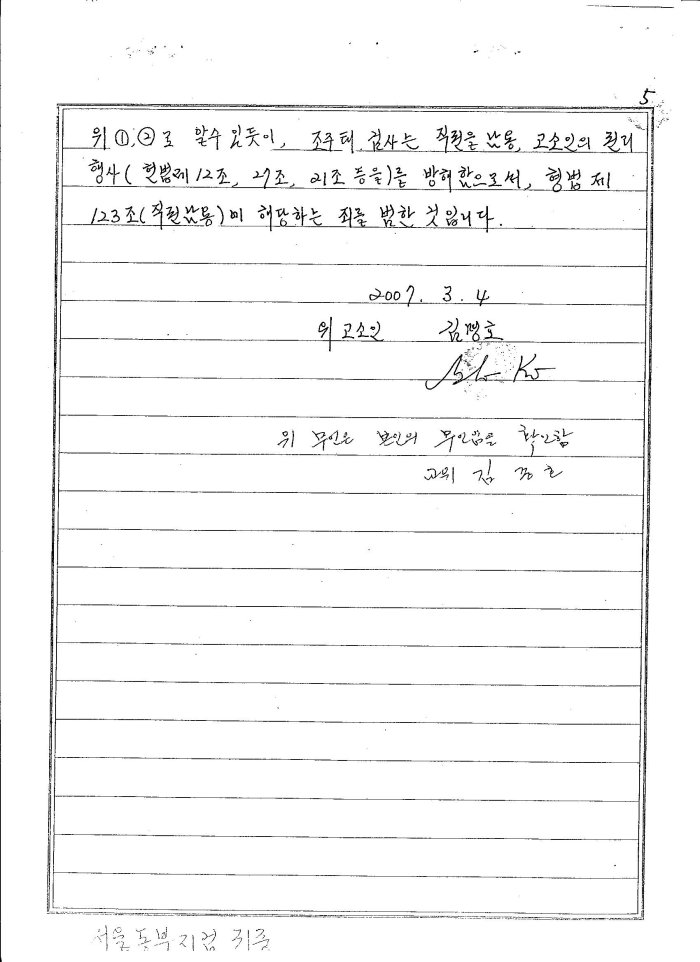 5
위 ①,②로 알수 있듯이, 조주태 검사는 직권을 남용, 고소인의 권리
행사(헌법제12조, 27조, 21조 등을)를 방해함으로서, 형법 제
123조(직권남용)에 해당하는 죄를 범한 것입니다.
2007. 3. 4
위 고소인 김명호
위 무인은 본인의 무인임을 확인함
교위 김
서울동부지검 귀중